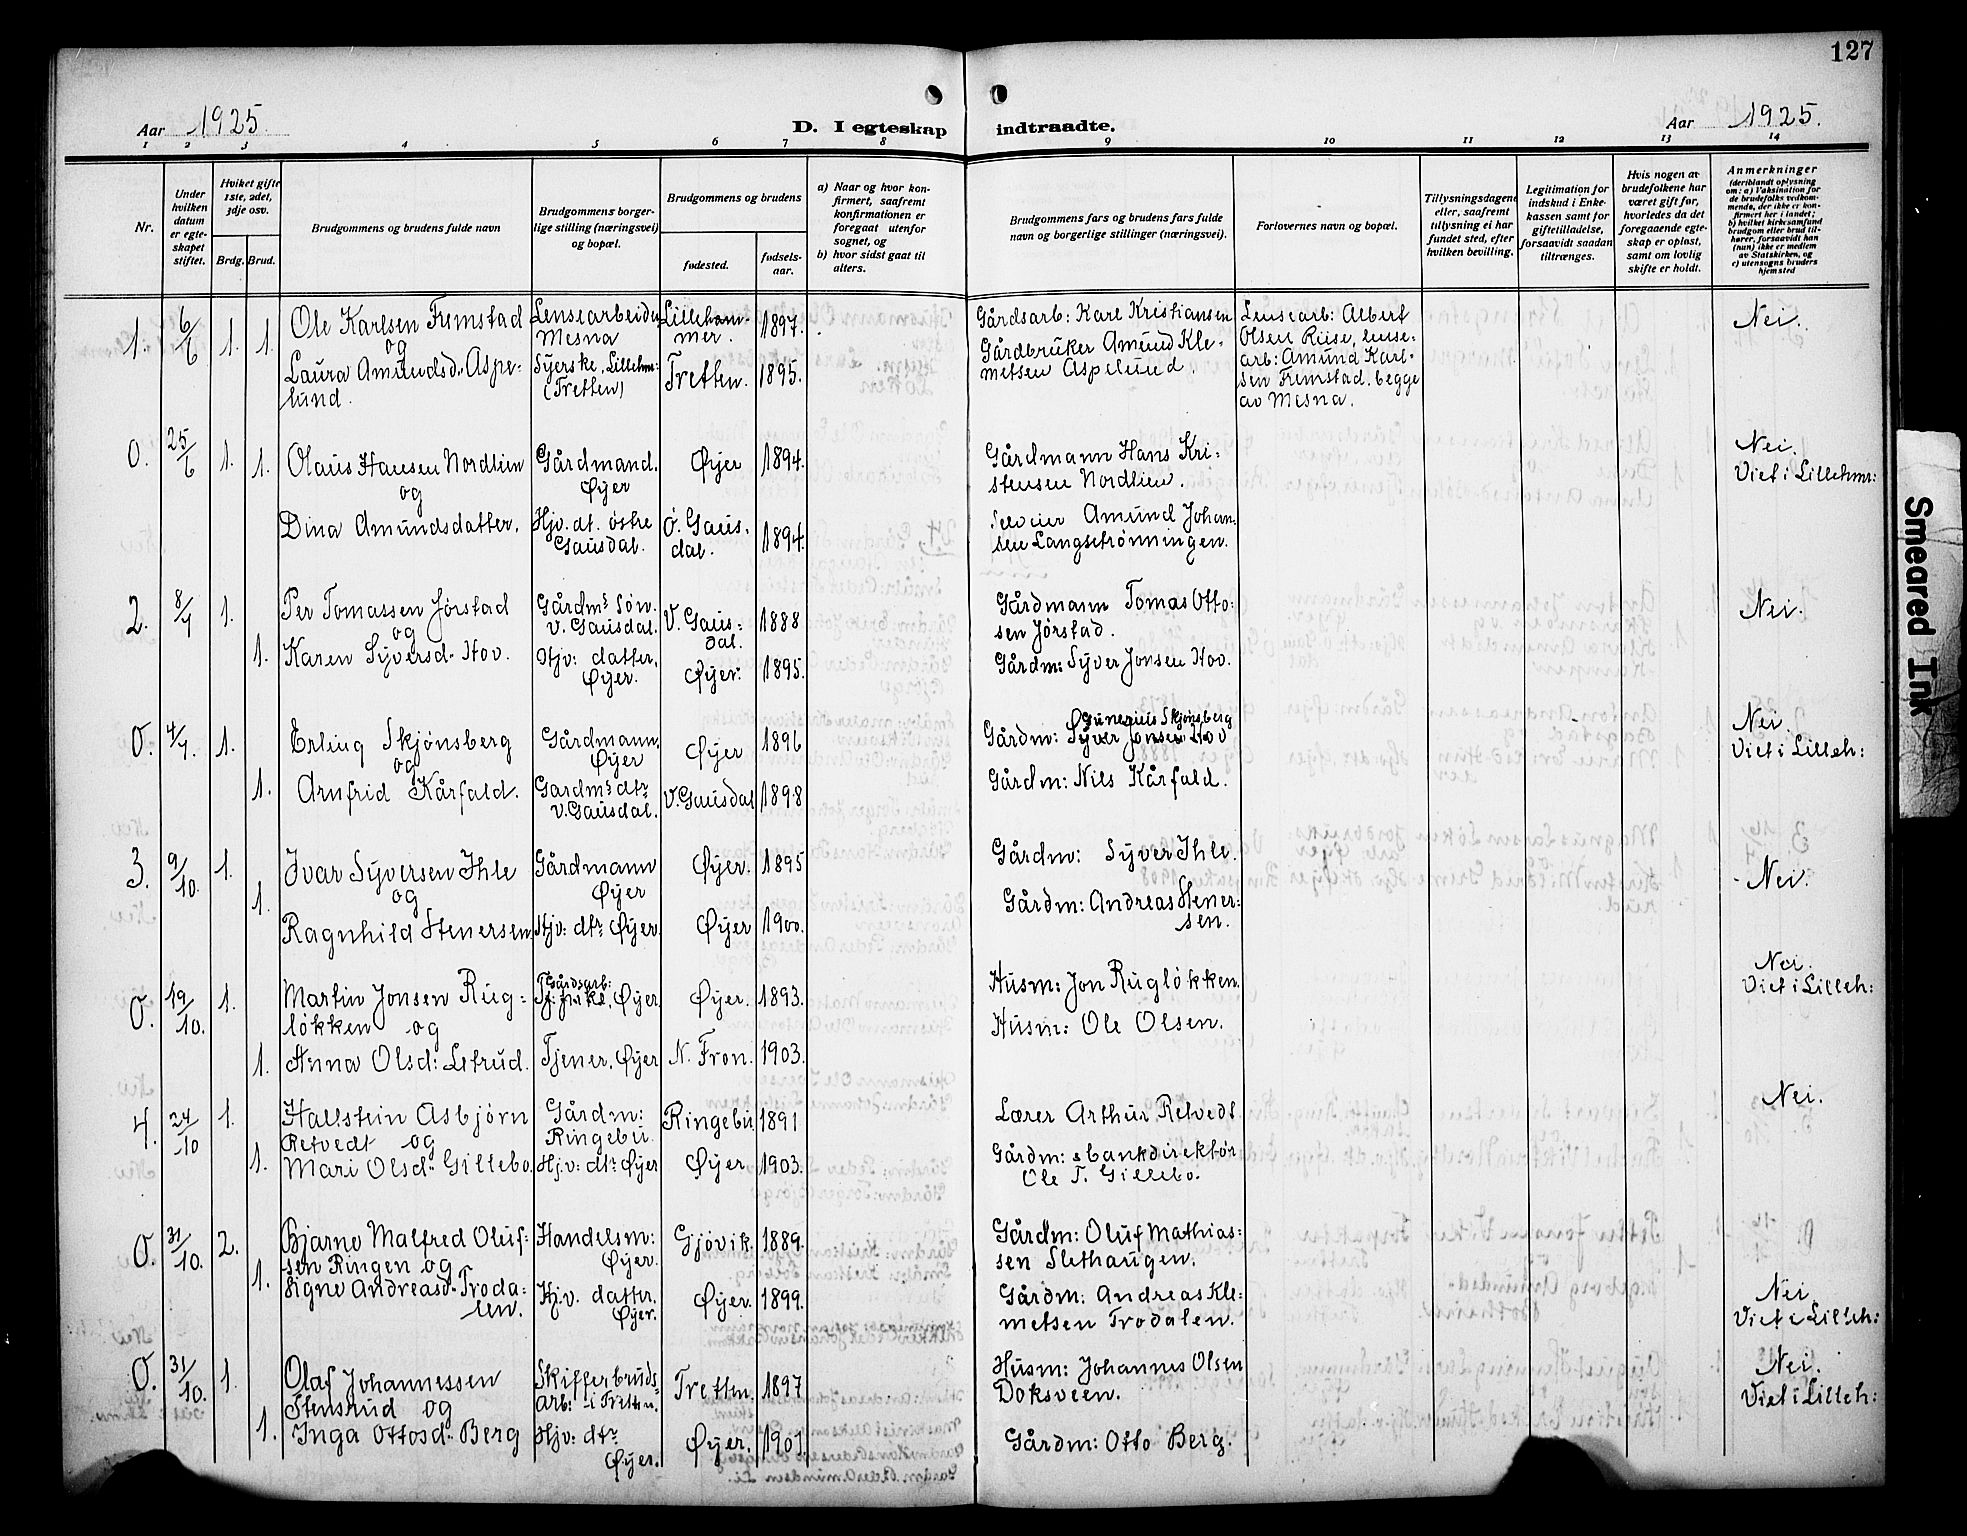 127
Aar 1925.
D. I egteskap indtraadte.
Aar 1925.
1 2 3 4 5 6 7 8 9 10 11 12 13 14
Nr.
Under hvilken datum er egteskapet stiftet.
Hviket gifte 1ste, 2det, 3dje osv.
Brdg. Brud.
Brudgommens og brudens fulde navn
Brudgommens borgerlige stilling (næringsvei) og bopæl.
Brudgommens og brudens
fødested.
fødselsaar.
a) Naar og hvor konfirmert, saafremt konfirmationen er foregaat utenfor sognet, og
b) hvor sidst gaat til alters.
Brudgommens fars og brudens fars fulde navn og borgerlige stillinger (næringsvei).
Forlovernes navn og bopæl.
Tillysningsdagene eller, saafremt tillysning ei har fundet sted, efter hvilken bevilling.
Legitimation for indskud i Enkekassen samt for giftetilladelse, forsaavidt saadan tiltrænges.
Hvis nogen av brudefolkene har været gift før, hvorledes da det foregaaende egteskap er opløst, samt om lovlig skifte er holdt.
Anmerkninger
(deriblandt oplysning om: a) Vaksination for de brudefolks vedkommende, der ikke er konfirmert her i landet; b) hvilket kirkesamfund brudgom eller brud tilhører, forsaavidt han (hun) ikke er medlem av Statskirken, og c) utensogns bruders hjemsted
1. 6/6 1. 1. Ole Karlsen Fremstad
og
Laura Amundsd. Aspelund.
Lensearbeider
Mesna
Syerske, Lillehmr:
(Tretten)
Lillehammer. 1897.
Tretten. 1895.
Gårdsarb: Karl Kristiansen
Gårdbruker Amund Klemetsen Aspelund.
Lensearb: Albert
Olsen Riise, lensearb: Amund Karlsen Fremstad. begge
av Mesna.
Nei.
0. 25/6 1. 1. Olaus Hansen Nordlien
og
Dina Amundsdatter.
Gårdmand.
Øyer
Hjv. dt. østre
Gausdal.
Øyer 1894.
Ø. Gausdal. 1894.
Gårdmann Hans Kristensen Nordlien.
Selveier Amund Johansen Langsetrønningen.
Nei.
Viet i Lillehmr:
2. 8/7 1. 1. Per Tomassen Jørstad
og
Karen Syversd. Hov.
Gårdms søn.
V. Gausdal.
Hjv: datter.
Øyer.
V. Gausdal. 1888
Øyer: 1895.
Gårdmann Tomas Ottosen Jørstad.
Gårdm: Syver Jonsen Hov.
Nei.
0. 4/7. 1. 1. Erling Skjønsberg
og
Arnfrid Kårfald.
Gårdmann.
Øyer
Gardms dtr
V. Gausdal.
Øyer 1896
V. Gausdal 1898
Gunerius Skjønsberg
Gårdm: Syver Jonsen Hov
Gårdm: Nils Kårfald.
Nei.
Viet i Lilleh:
3. 9/10. 1. 1. Ivar Syversen Ihle
og
Ragnhild Stenersen
Gårdmann
Øyer
Hjv: dtr Øyer.
Øyer. 1895
Øyer 1900.
Gårdm: Syver Ihle.
Gårdm: Andreas Stenersen.
Nei.
0. 19/10. 1. 1. Martin Jonsen Rugløkken og
Anna Olsd: Letrud.
Gårdsarb:
Øyer.
Tjener, Øyer
Øyer. 1893.
N. Fron. 1903.
Husm: Jon Rugløkken.
Husm: Ole Olsen.
Nei.
Viet i Lilleh:
4. 24/10 1. 1. Hallstein Asbjørn
Retvedt og
Mari Olsd. Gillebo.
Gårdm:
Ringebu.
Hjv: dtr Øyer
Ringebu 1891
Øyer 1903.
Lærer Arthur Retvedt.
Gårdm: & bankdirektør
Ole T. Gillebo.
Nei.
0. 31/10. 2. 1. Bjarne Malfred Olufsen Ringen og
Signe Andreasd. Trodalen.
Handelsm:
Øyer.
Hjv. datter.
Øyer.
Gjøvik. 1889.
Øyer. 1899.
Gårdm: Oluf Mathiassen Slethaugen.
Gårdm: Andreas Klemetsen Trodalen.
Nei
Viet i Lilleh:
0. 31/10. 1. 1. Olaf Johannessen
Stensrud og
Inga Ottosd. Berg
Skifferbruds-
arb: i Tretten.
Hjv: dtr
Øyer.
Tretten. 1897
Øyer. 1901.
Husm: Johannes Olsen
Doksveen.
Gårdm: Otto Berg.
Nei.
Viet i Lilleh:
Smeared Ink